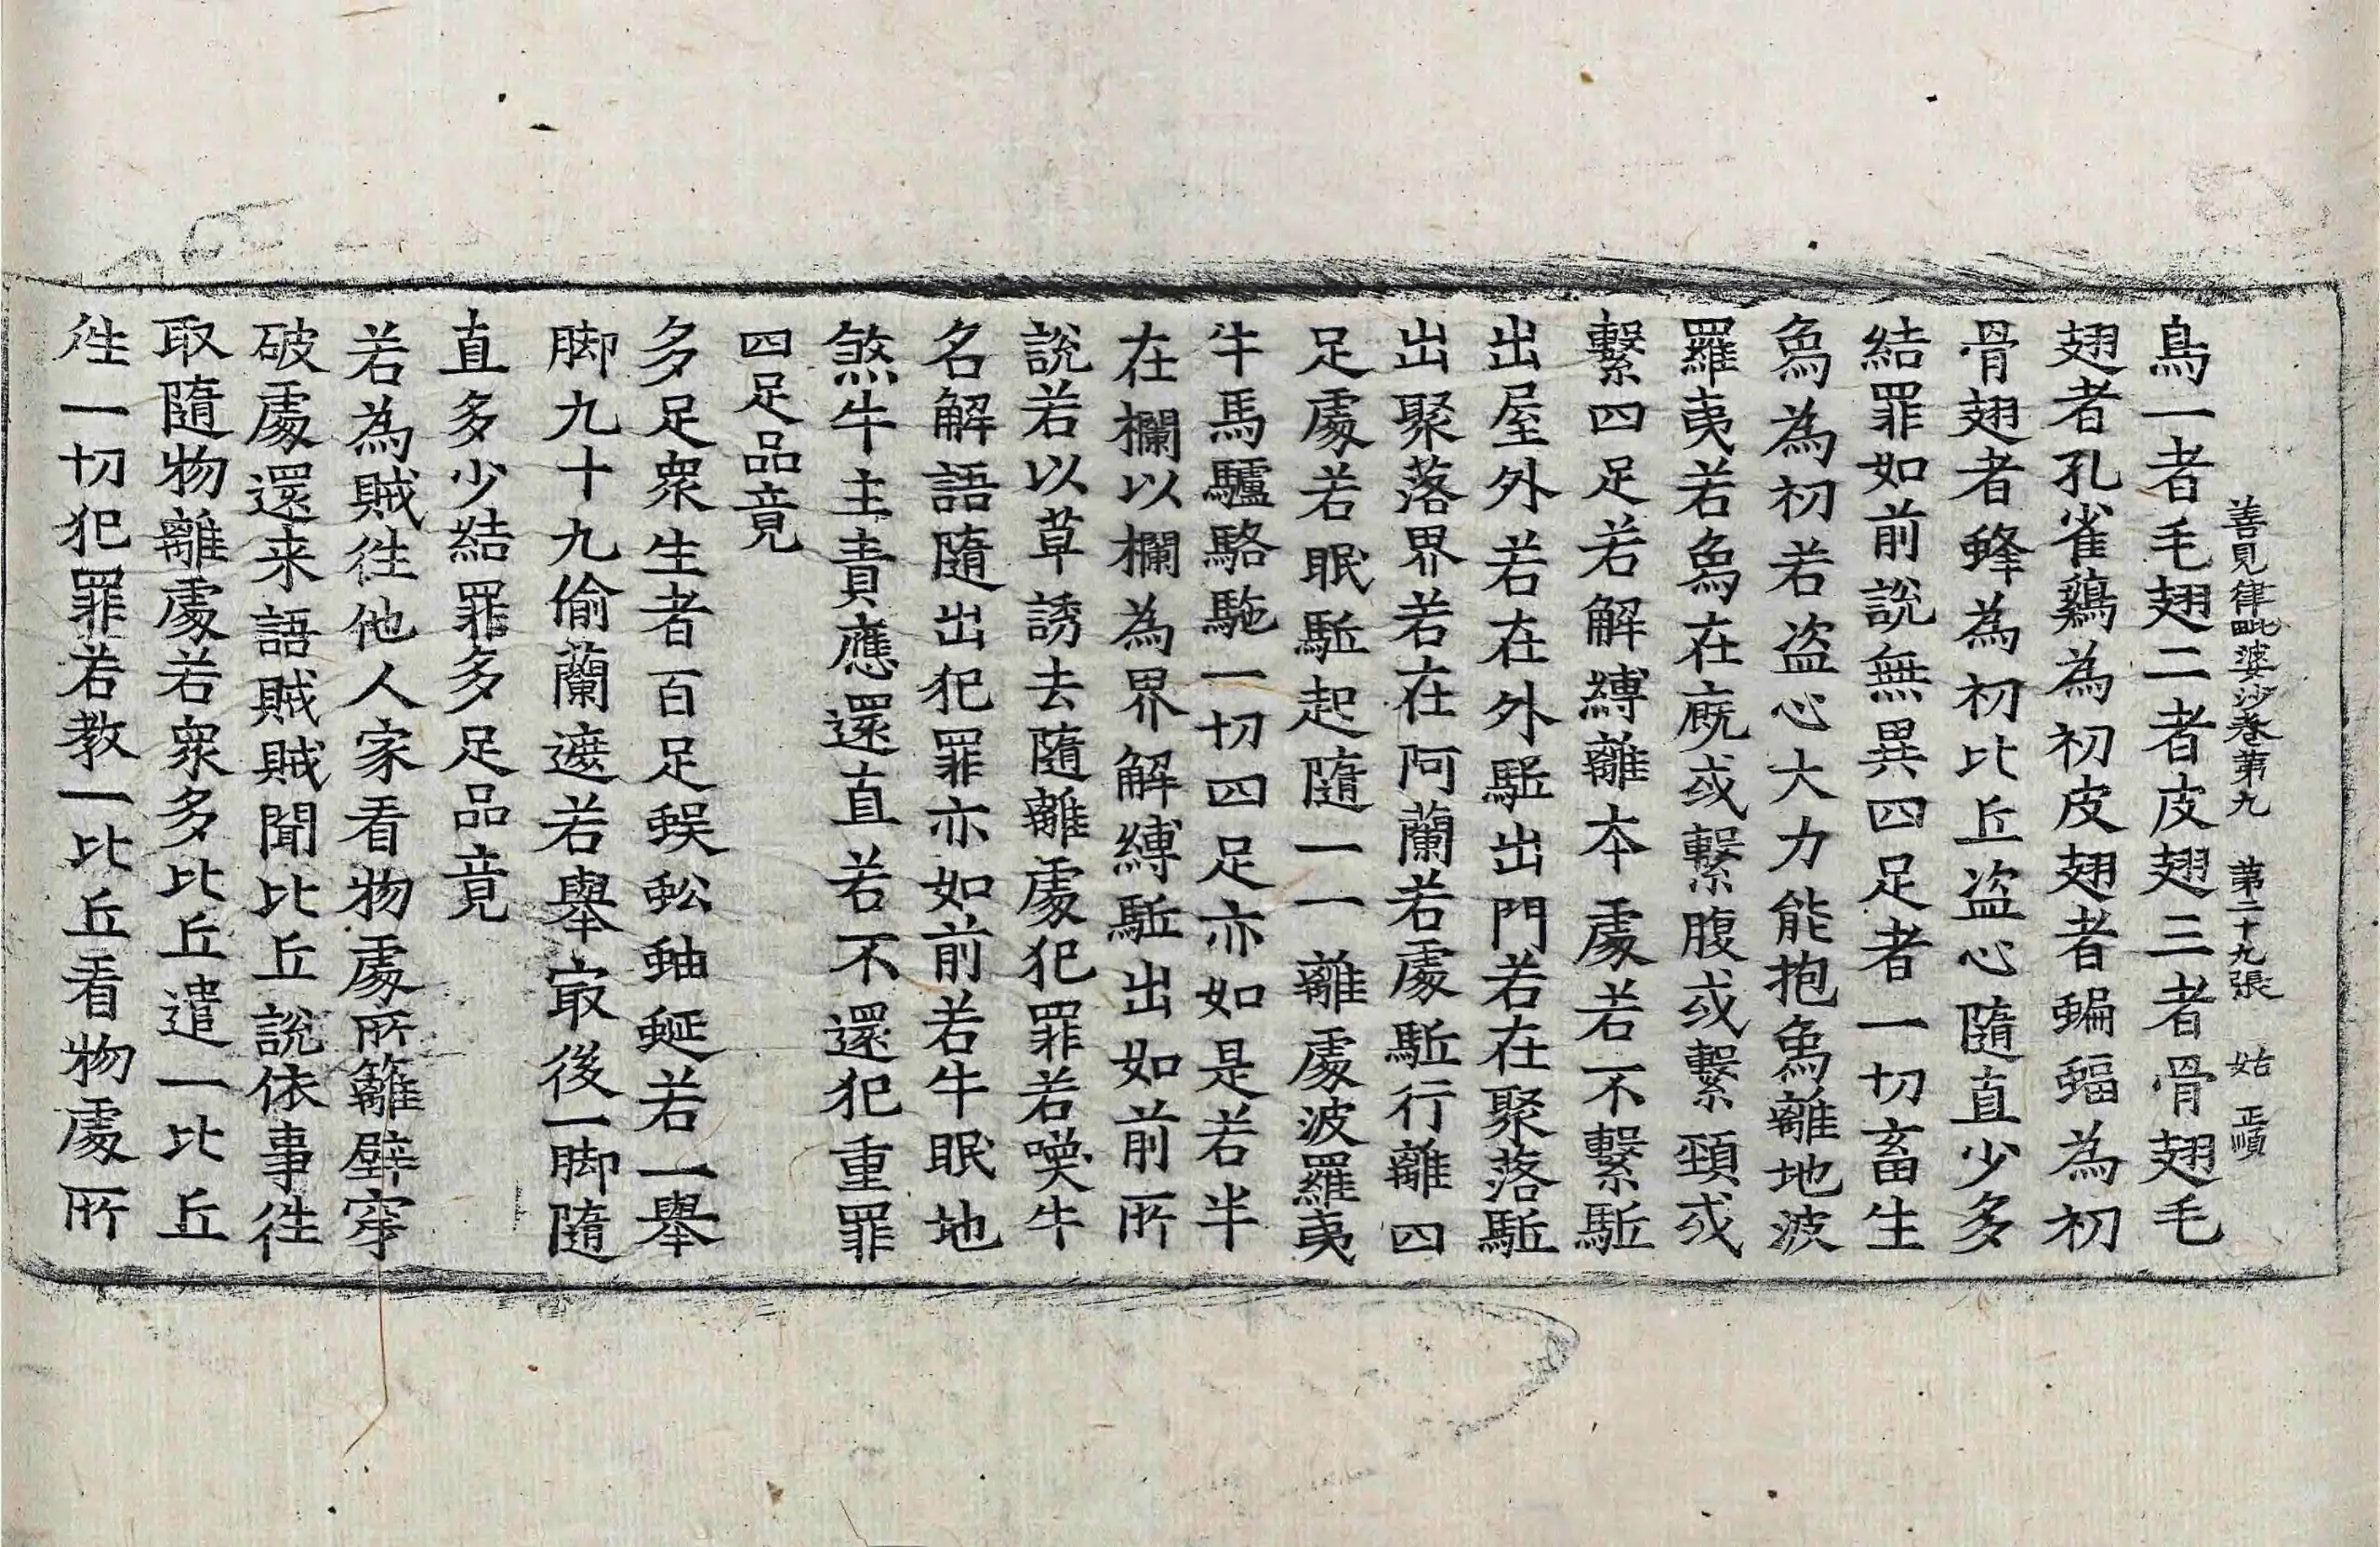 善見律毗婆沙卷第九　第二十九張　姑　正順
鳥一者毛翅二者皮翅三者骨翅毛
翅者孔雀鷄為初皮翅者蝙蝠為初
骨翅者蜂為初比丘盗心隨直少多
結罪如前說無異四足者一切畜生
象為初若盗心大力能抱象離地波
羅夷若象在廐或繫腹或繫頸或
繫四足若解縛離本處若不繫駈
出屋外若在外駈出門若在聚落駈
出聚落界若在阿蘭若處駈行離四
足處若眠駈起隨一一離處波羅夷
牛馬驢駱駞一切四足亦如是若半
在欄以欄為界解縛駈出如前所
說若以草誘去隨離處犯罪若嘆牛
名解語隨出犯罪亦如前若牛眠地
煞牛主責應還直若不還犯重罪
四足品竟
多足衆生者百足蜈蚣蚰蜒若一舉
脚九十九偷蘭遮若舉冣後一脚隨
直多少結罪多足品竟
若為賊徃他人家看物處所籬壁穿
破處還来語賊賊聞比丘說依事徃
取隨物離處若衆多比丘遣一比丘
徃一切犯罪若教一比丘看物處所